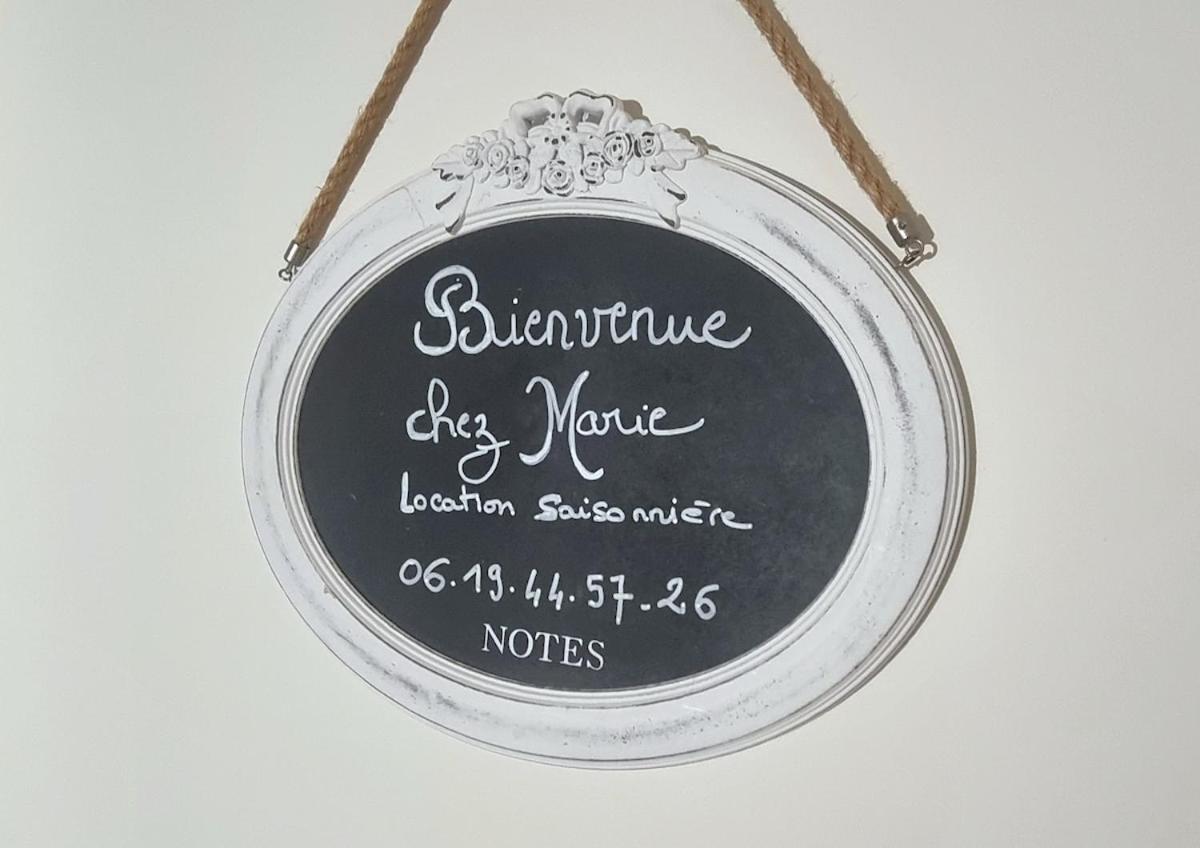 Bienvenue
chez Marie
Location saisonnière
06.19.44.57-26
NOTES